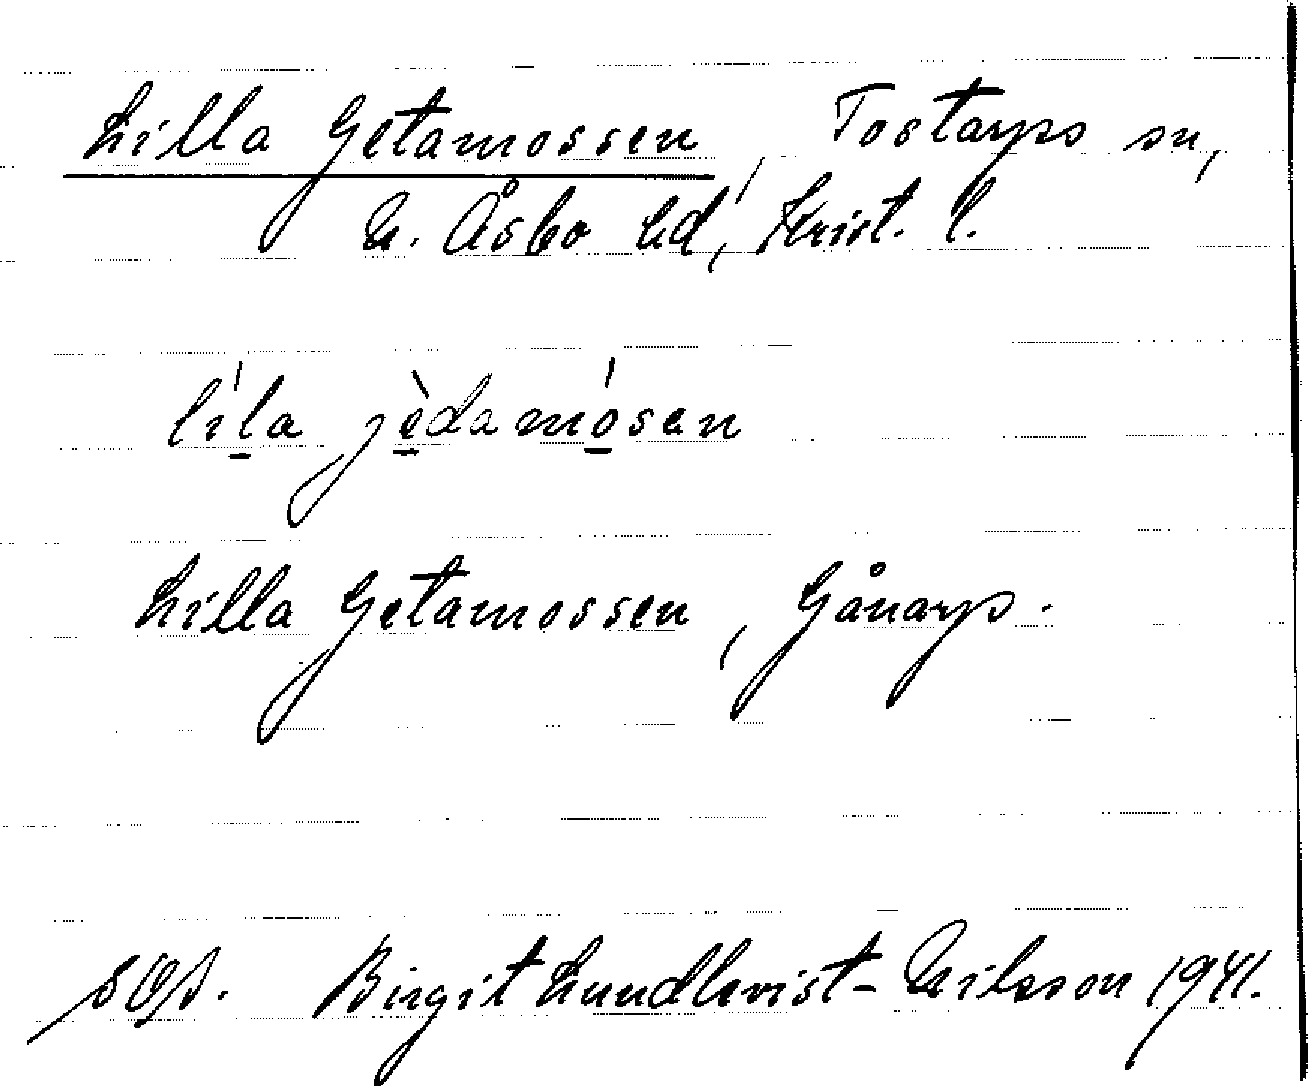 Lilla Getamossen, Tostarps sn,
N. Åsbo hd, Krist. l.
líla jèdamósen
Lilla Getamossen, Gånarp.
Birgit Lundkvist-Nilsson 1941.